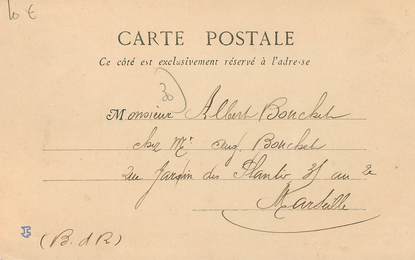 10 €
CARTE POSTALE
Ce côté est exclusivement réservé à l'adresse
30
Monsieur Albert Bouchet
chez Mr Aug. Bouchet
Rue Jardin des Plantes 35 au 2e
Marseille
(B. d R)